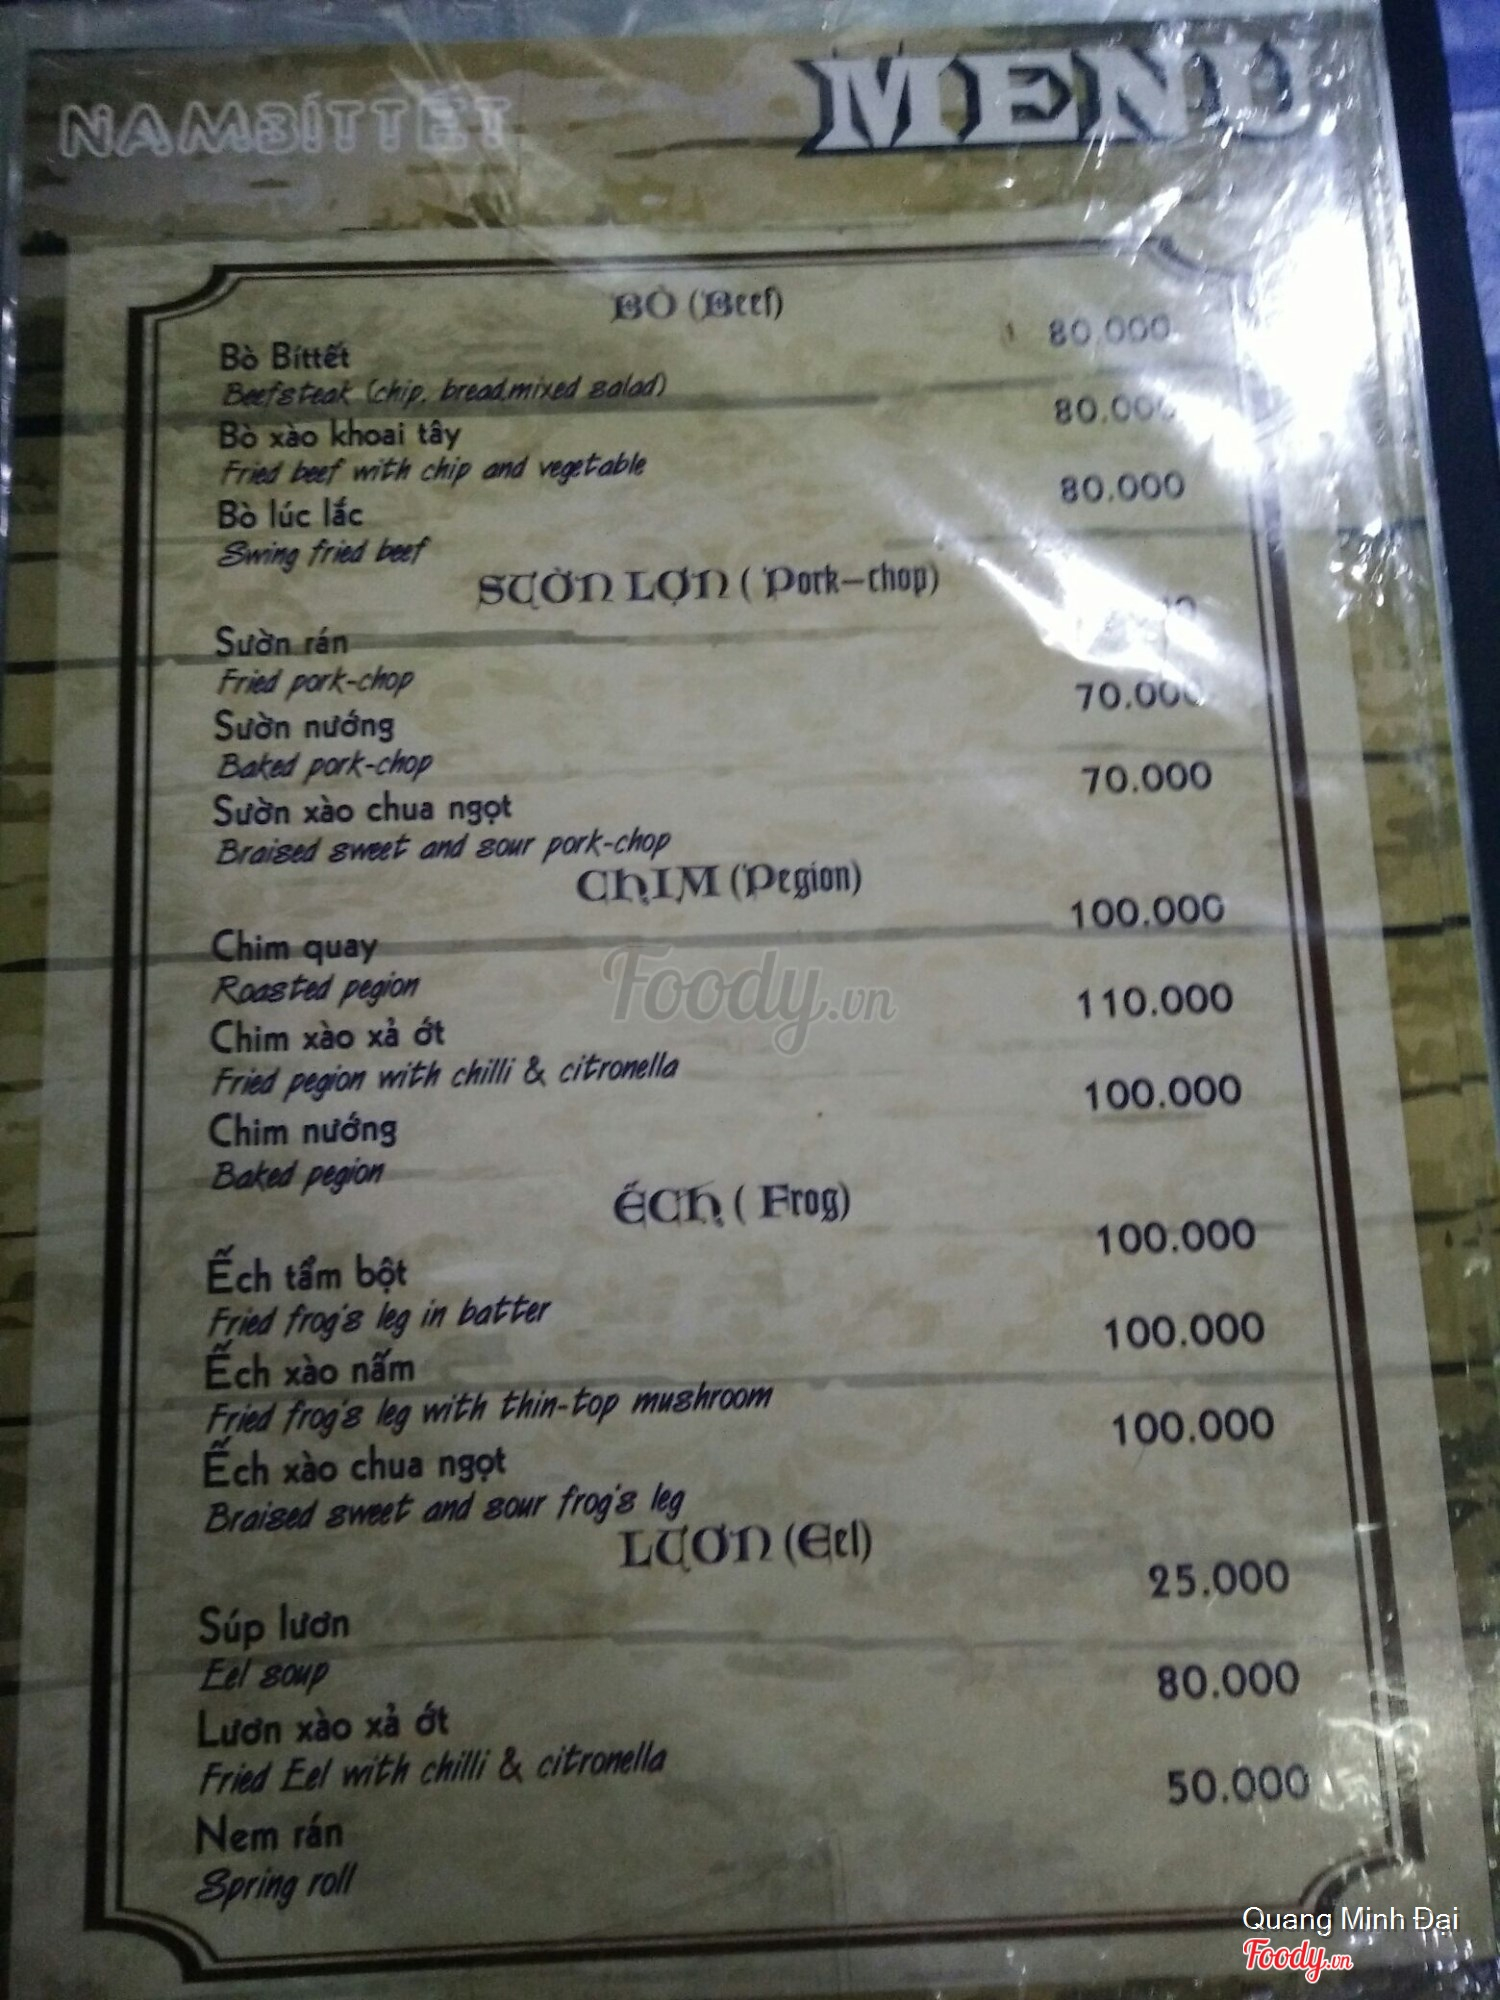 NAMBÍTTẾT
MENU
BÒ (Beef)
Bò Bíttết 80.000
Beefsteak (chip, bread,mixed salad)
Bò xào khoai tây 80.000
Fried beef with chip and vegetable
Bò lúc lắc 80.000
Swing fried beef
SƯỜN LỢN ( Pork-chop)
Sườn rán
Fried pork-chop
Sườn nướng 70.000
Baked pork-chop
Sườn xào chua ngọt 70.000
Braised sweet and sour pork-chop
CHIM (Pegion)
Chim quay 100.000
Roasted pegion
Chim xào xả ớt 110.000
Fried pegion with chilli & citronella
Chim nướng 100.000
Baked pegion
ẾCH ( Frog)
Ếch tẩm bột 100.000
Fried frog's leg in batter
Ếch xào nấm 100.000
Fried frog's leg with thin-top mushroom
Ếch xào chua ngọt 100.000
Braised sweet and sour frog's leg
LƯƠN (Eel)
Súp lươn 25.000
Eel soup
Lươn xào xả ớt 80.000
Fried Eel with chilli & citronella
Nem rán 50.000
Spring roll
Foody.vn
Quang Minh Đại
Foody.vn